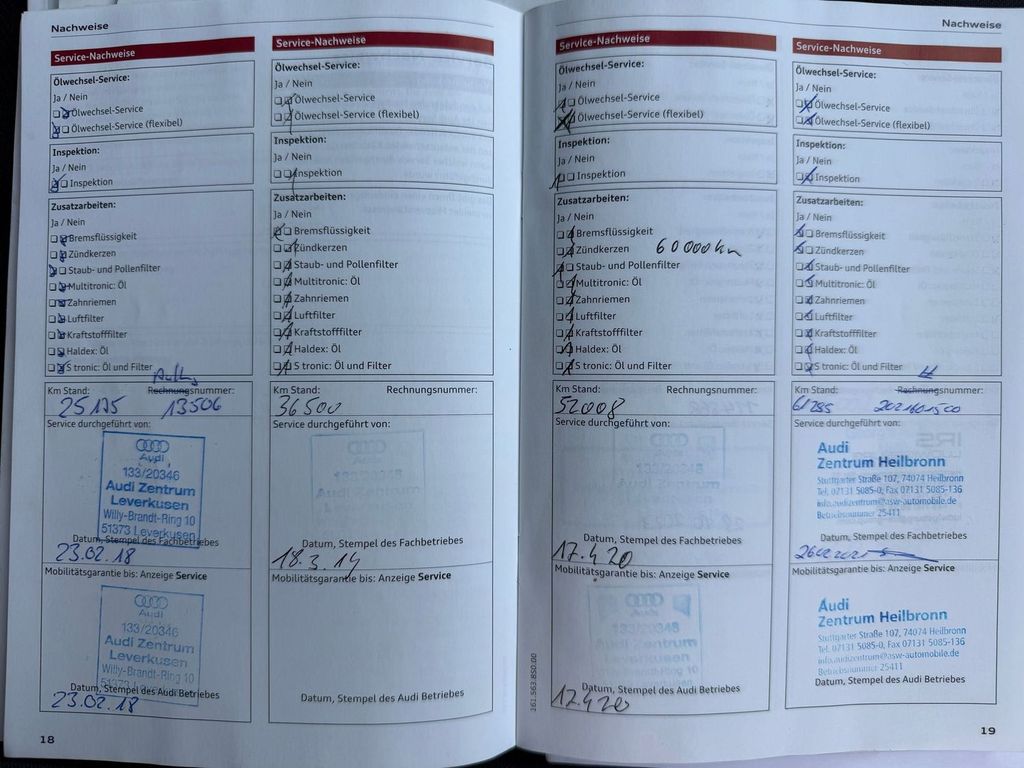 Nachweise
Service-Nachweise
Ölwechsel-Service:
Ja / Nein
Ölwechsel-Service
Ölwechsel-Service (flexibel)
Inspektion:
Ja / Nein
Inspektion
Zusatzarbeiten:
Ja / Nein
Bremsflüssigkeit
Zündkerzen
Staub- und Pollenfilter
Multitronic: Öl
Zahnriemen
Luftfilter
Kraftstofffilter
Haldex: Öl
S tronic: Öl und Filter
Km Stand: Rechnungsnummer:
25175 13506
Service durchgeführt von:
Audi
133/20346
Audi Zentrum
Leverkusen
Willy-Brandt-Ring 10
51373 Leverkusen
Datum, Stempel des Fachbetriebes
23.02.18
Mobilitätsgarantie bis: Anzeige Service
Audi
133/20346
Audi Zentrum
Leverkusen
Willy-Brandt-Ring 10
51373 Leverkusen
Datum, Stempel des Audi Betriebes
23.02.18
18
Service-Nachweise
Ölwechsel-Service:
Ja / Nein
Ölwechsel-Service
Ölwechsel-Service (flexibel)
Inspektion:
Ja / Nein
Inspektion
Zusatzarbeiten:
Ja / Nein
Bremsflüssigkeit
Zündkerzen
Staub- und Pollenfilter
Multitronic: Öl
Zahnriemen
Luftfilter
Kraftstofffilter
Haldex: Öl
S tronic: Öl und Filter
Km Stand: Rechnungsnummer:
36500
Service durchgeführt von:
Datum, Stempel des Fachbetriebes
18.3.19
Mobilitätsgarantie bis: Anzeige Service
Datum, Stempel des Audi Betriebes
Service-Nachweise
Ölwechsel-Service:
Ja / Nein
Ölwechsel-Service
Ölwechsel-Service (flexibel)
Inspektion:
Ja / Nein
Inspektion
Zusatzarbeiten:
Ja / Nein
Bremsflüssigkeit
Zündkerzen 60000km
Staub- und Pollenfilter
Multitronic: Öl
Zahnriemen
Luftfilter
Kraftstofffilter
Haldex: Öl
S tronic: Öl und Filter
Km Stand: Rechnungsnummer:
52008
Service durchgeführt von:
Datum, Stempel des Fachbetriebes
17.4.20
Mobilitätsgarantie bis: Anzeige Service
Datum, Stempel des Audi Betriebes
17.4.20
161.563.8S0.00
Nachweise
Service-Nachweise
Ölwechsel-Service:
Ja / Nein
Ölwechsel-Service
Ölwechsel-Service (flexibel)
Inspektion:
Ja / Nein
Inspektion
Zusatzarbeiten:
Ja / Nein
Bremsflüssigkeit
Zündkerzen
Staub- und Pollenfilter
Multitronic: Öl
Zahnriemen
Luftfilter
Kraftstofffilter
Haldex: Öl
S tronic: Öl und Filter
Km Stand: Rechnungsnummer:
61285
Service durchgeführt von:
Audi
Zentrum Heilbronn
Stuttgarter Straße 107, 74074 Heilbronn
Tel. 07131 5085-0, Fax 07131 5085-136
info.audizentrum@asw-automobile.de
Betriebsnummer 25411
Datum, Stempel des Fachbetriebes
Mobilitätsgarantie bis: Anzeige Service
Audi
Zentrum Heilbronn
Stuttgarter Straße 107, 74074 Heilbronn
Tel. 07131 5085-0, Fax 07131 5085-136
info.audizentrum@asw-automobile.de
Betriebsnummer 25411
Datum, Stempel des Audi Betriebes
19